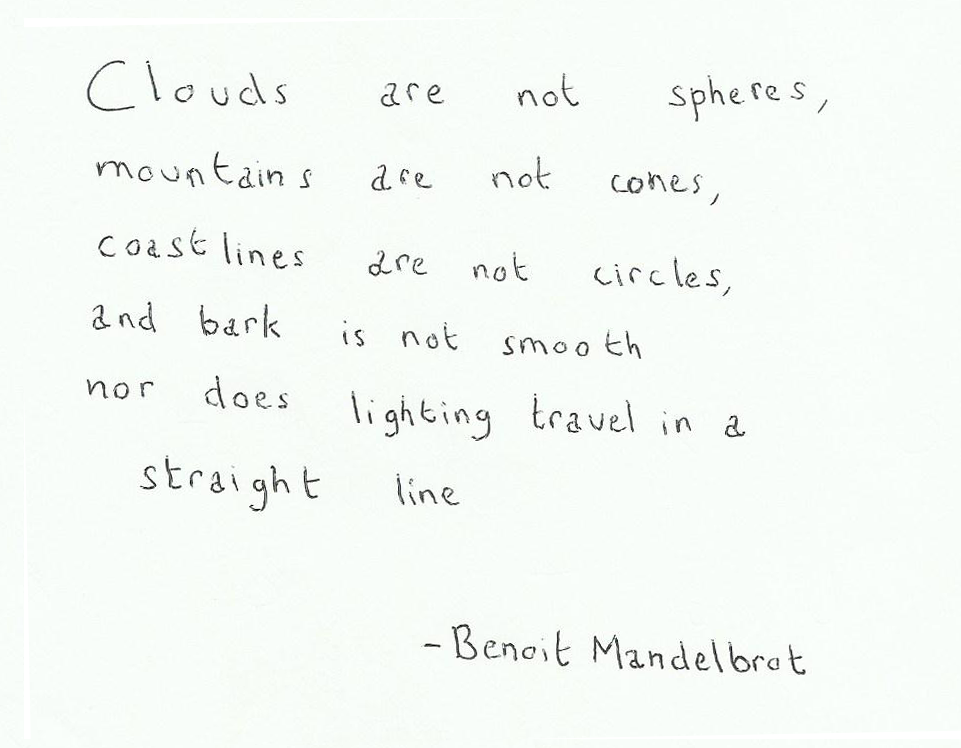 Clouds are not spheres,
mountains are not cones,
coastlines are not circles,
and bark is not smooth
nor does lighting travel in a
straight line
-Benoit Mandelbrot